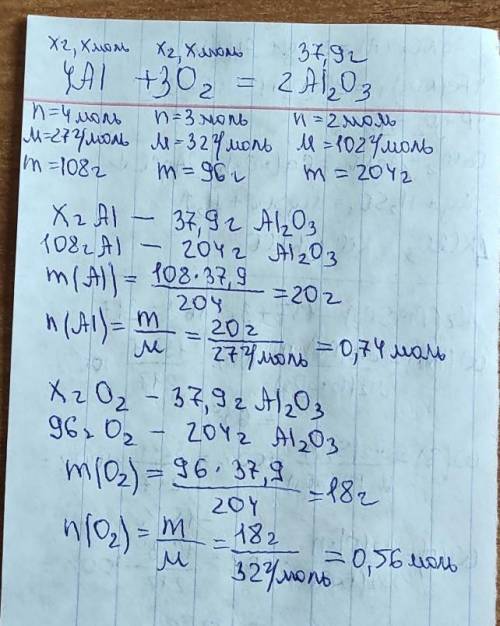 х г, х моль х г, х моль 37,9 г
4Al + 3O₂ = 2Al₂O₃
n=4 моль n=3 моль n=2 моль
M=27 г/моль M=32 г/моль M=102 г/моль
m=108 г m=96 г m=204 г
х г Al — 37,9 г Al₂O₃
108 г Al — 204 г Al₂O₃
m(Al) = 108·37,9 / 204 = 20 г
n(Al) = m / M = 20 г / 27 г/моль = 0,74 моль
х г O₂ — 37,9 г Al₂O₃
96 г O₂ — 204 г Al₂O₃
m(O₂) = 96·37,9 / 204 = 18 г
n(O₂) = m / M = 18 г / 32 г/моль = 0,56 моль